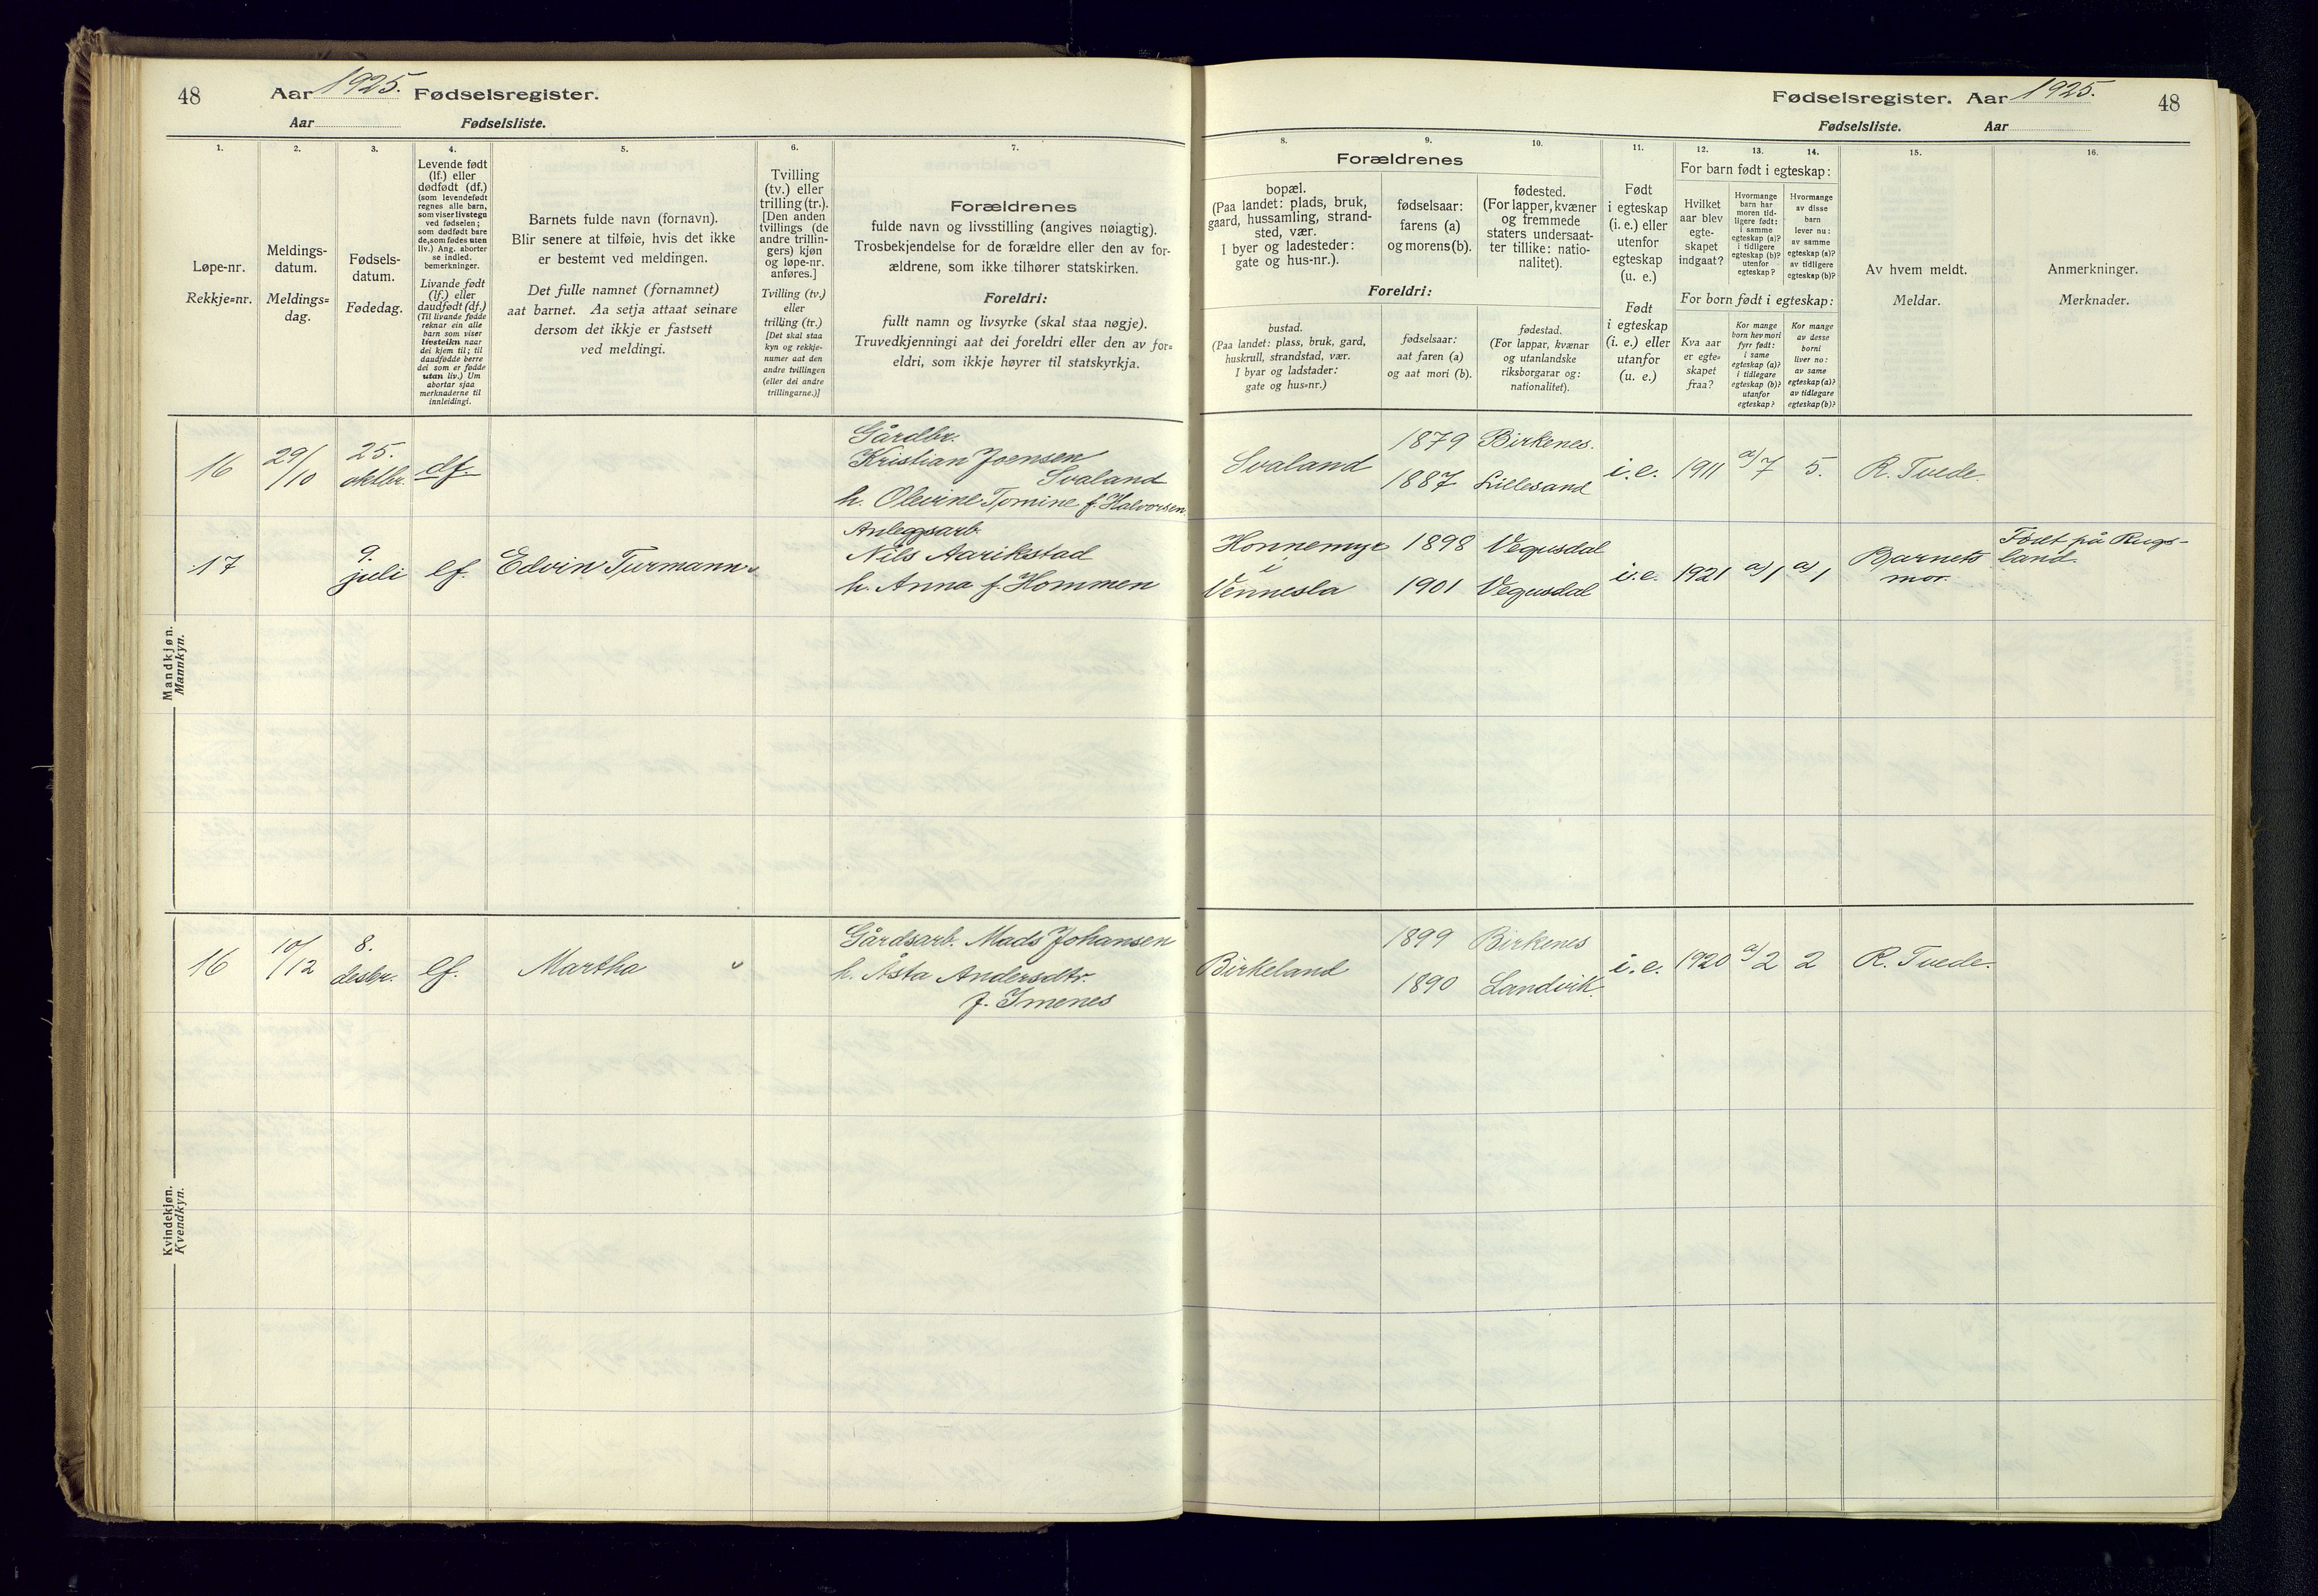 48
Aar 1925. Fødselsregister.
Aar Fødselsliste.
1.
Løpe-nr.
Rekkje=nr.
2.
Meldings-
datum.
Meldings=
dag.
3.
Fødsels-
datum.
Fødedag.
4.
Levende født
(lf.) eller
dødfødt (df.)
(som levendefødt
regnes alle barn,
som viser livstegn
ved fødselen;
som dødfødt bare
de, som fødes uten
liv.) Ang. aborter
se indled.
bemerkninger.
Livande født
(lf.) eller
daudfødt (df.)
(Til livande fødde
reknar ein alle
barn som viser
livsteikn naar
dei kjem til; til
daudfødde berre
dei som er fødde
utan liv.) Um
abortar sjaa
merknaderne til
innleidingi.
5.
Barnets fulde navn (fornavn).
Blir senere at tilføie, hvis det ikke
er bestemt ved meldingen.
Det fulle namnet (fornamnet)
aat barnet. Aa setja attaat seinare
dersom det ikkje er fastsett
ved meldingi.
6.
Tvilling
(tv.) eller
trilling (tr.).
[Den anden
tvillings (de
andre trillin-
gers) kjøn
og løpe-nr.
anføres.]
Tvilling (tv.)
eller
trilling (tr.)
[Det skal staa
kyn og rekkje-
numer aat den
andre tvillingen
(eller dei andre
trillingarne.)]
7.
Forældrenes
fulde navn og livsstilling (angives nøiagtig).
Trosbekjendelse for de forældre eller den av for-
ældrene, som ikke tilhører statskirken.
Foreldri:
fullt namn og livsyrke (skal staa nøgje).
Truvedkjenningi aat dei foreldri eller den av for=
eldri, som ikkje høyrer til statskyrkja.
Mandkjøn.
Mannkyn.
16
29/10
25.
oktbr.
df.
Gårdbr.
Kristian Joensen
Svaland
h. Olevine Tomine f. Halvorsen
17
9.
juli
lf.
Edvin Turmann
Anleggsarb.
Nils Aarikstad
h. Anna f. Hommen
Kvindekjøn.
Kvendkyn.
16
10/12
8.
desbr.
lf.
Martha
Gårdsarb. Mads Johansen
h. Åsta Andersdtr.
f. Imenes
Fødselsregister. Aar 1925.
48
Fødselsliste. Aar
8.
Forældrenes
bopæl.
(Paa landet: plads, bruk,
gaard, hussamling, strand-
sted, vær.
I byer og ladesteder:
gate og hus-nr.).
Foreldri:
bustad.
(Paa landet: plass, bruk, gard,
huskrull, strandstad, vær.
I byar og ladstader:
gate og hus=nr.)
9.
fødselsaar:
farens (a)
og morens (b).
fødselsaar:
aat faren (a)
og aat mori (b).
10.
fødested.
(For lapper, kvæner
og fremmede
staters undersaat-
ter tillike: natio-
nalitet).
fødestad.
(For lappar, kvænar
og utanlandske
riksborgarar og:
nationalitet).
11.
Født
i egteskap
(i. e.) eller
utenfor
egteskap
(u. e.)
Født
i egteskap
(i. e.) eller
utanfor
(u. e.)
12. 13. 14.
For barn født i egteskap:
Hvilket
aar blev
egte-
skapet
indgaat?
Hvormange
barn har
moren tid-
ligere født:
i samme
egteskap (a)?
i tidligere
egteskap (b)?
utenfor
egteskap?
Hvormange
av disse
barn
lever nu:
av samme
egteskap (a)?
av tidligere
egteskap (b)?
For born født i egteskap:
Kva aar
er egte=
skapet
fraa?
Kor mange
born hev mori
fyrr født:
i same
egteskap (a)?
i tidlegare
egteskap (b)?
utanfor
egteskap?
Kor mange
av desse
borni
liver no:
av same
egteskap (a)?
av tidlegare
egteskap (b)?
15.
Av hvem meldt.
Meldar.
16.
Anmerkninger.
Merknader.
Svaland
1879
1887
Birkenes.
Lillesand
i.e.
1911
a) 7
5.
R. Tvede.
Honnemyr
i
Vennesla
1898
1901
Vegusdal
Vegusdal
i.e.
1921
a) 1
a) 1
Barnets
mor.
Født på Rugs-
land.
Birkeland
1899
1890
Birkenes
Landvik.
i.e.
1920
a) 2
2
R. Tvede.